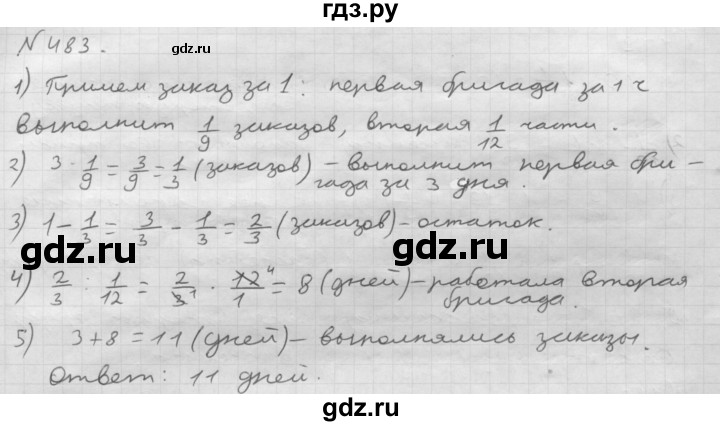 гдз.ру
№ 483.
gdz.ru
1) Примем заказ за 1 : первая бригада за 1 ч
выполнит 1/9 заказов, вторая 1/12 части.
2) 3 · 1/9 = 3/9 = 1/3 (заказов) – выполнит первая бри-
гада за 3 дня.
gdz.ru
gdz.ru
3) 1 - 1/3 = 3/3 - 1/3 = 2/3 (заказов) – остаток.
gdz.ru
gdz.ru
4) 2/3 : 1/12 = 2/3 1 · 12 4/1 = 8 (дней) – работала вторая
бригада.
5) 3 + 8 = 11 (дней) – выполнялись заказы.
Ответ: 11 дней.
gdz.ru
gdz.ru